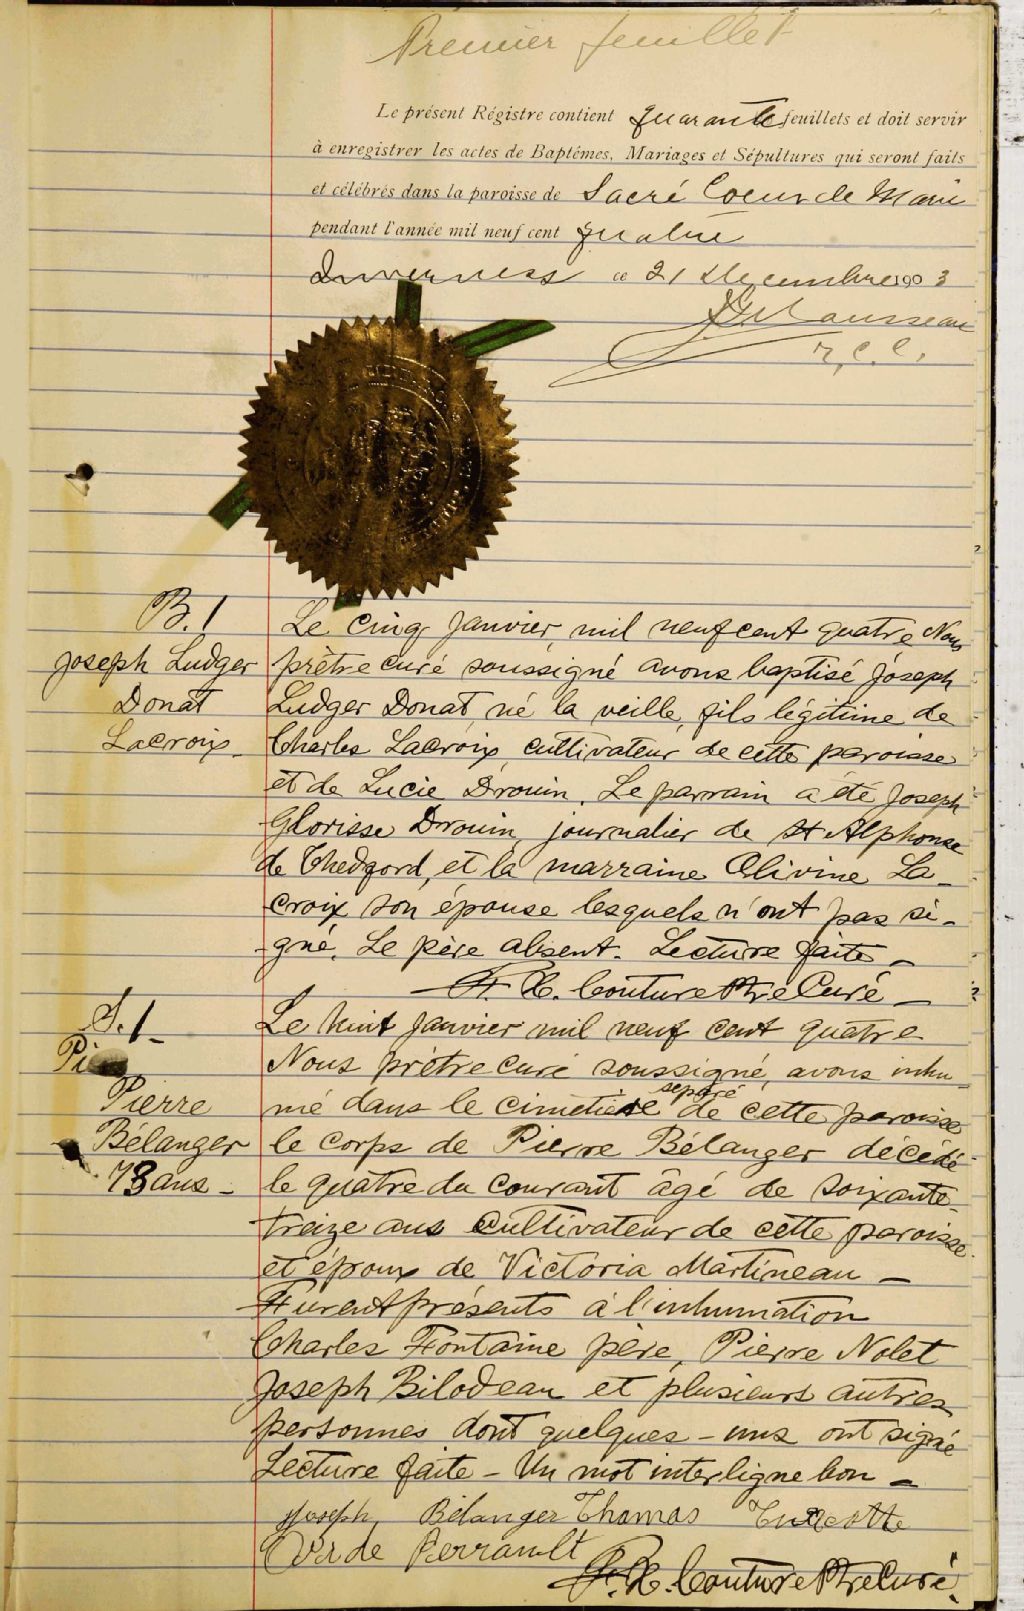 Premier feuillet
Le présent Régistre contient quarante feuillets et doit servir
à enregistrer les actes de Baptêmes, Mariages et Sépultures qui seront faits
et célébrés dans la paroisse de Sacré Coeur de Marie
pendant l'année mil neuf cent quatre
Inverness ce 21 Décembre 1903
Rousseau
B. 1
Joseph Ludger
Donat
Lacroix
Le cinq Janvier mil neuf cent quatre Nous
prêtre curé soussigné avons baptisé Joseph
Ludger Donat, né la veille, fils légitime de
Charles Lacroix, cultivateur, de cette paroisse
et de Lucie Drouin. Le parrain a été Joseph
Glorisse Drouin, journalier de St Alphonse
de Thedford, et la marraine Olivine La-
croix son épouse lesquels n'ont pas si-
gné. Le père absent. Lecture faite -
F. X. Couture Ptre Curé -
S. 1 -
Pi
Pierre
Bélanger
73 ans -
Le huit Janvier mil neuf cent quatre
Nous prêtre curé soussigné, avons inhu-
mé dans le cimetière séparé de cette paroisse
le corps de Pierre Bélanger décédé
le quatre du courant âgé de soixante-
treize ans cultivateur de cette paroisse
et époux de Victoria Martineau -
Furent présents à l'inhumation
Charles Fontaine père, Pierre Nolet
Joseph Bilodeau et plusieurs autres
personnes dont quelques-uns ont signé
Lecture faite - Un mot interligne bon -
Joseph Bélanger Thomas Turcotte
Perrault
F. X. Couture Ptre Curé.